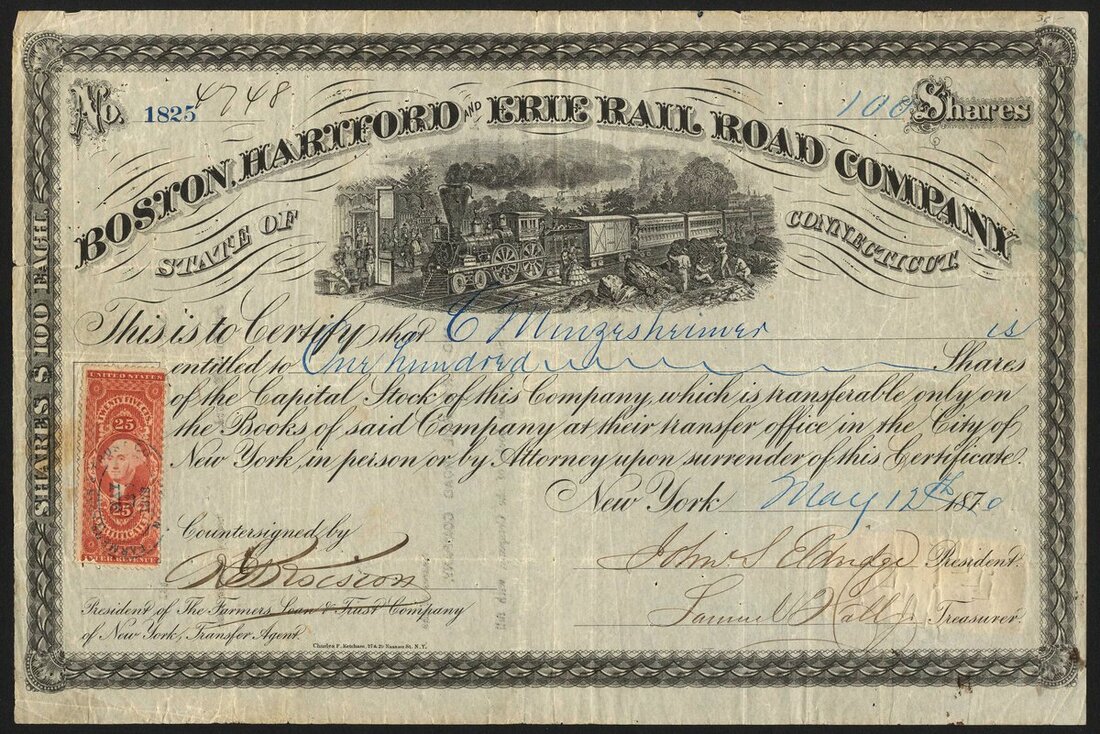 No. 1825 4748
100 Shares
BOSTON, HARTFORD AND ERIE RAIL ROAD COMPANY
STATE OF CONNECTICUT.
SHARES $100 EACH.
This is to Certify that C Minzesheimer is
entitled to One hundred Shares
of the Capital Stock of this Company, which is transferable only on
the Books of said Company at their transfer office in the City of
New York, in person or by Attorney upon surrender of this Certificate.
New York May 12th 1870
UNITED STATES
TWENTY FIVE CTS.
25
25
CERTIFICATE
INTER. REVENUE
Countersigned by
President of The Farmers Loan & Trust Company
of New York, Transfer Agent.
John S Eldridge President.
Samuel Hall Jr Treasurer.
Charles F. Ketcham, 27 & 29 Nassau St. N.Y.